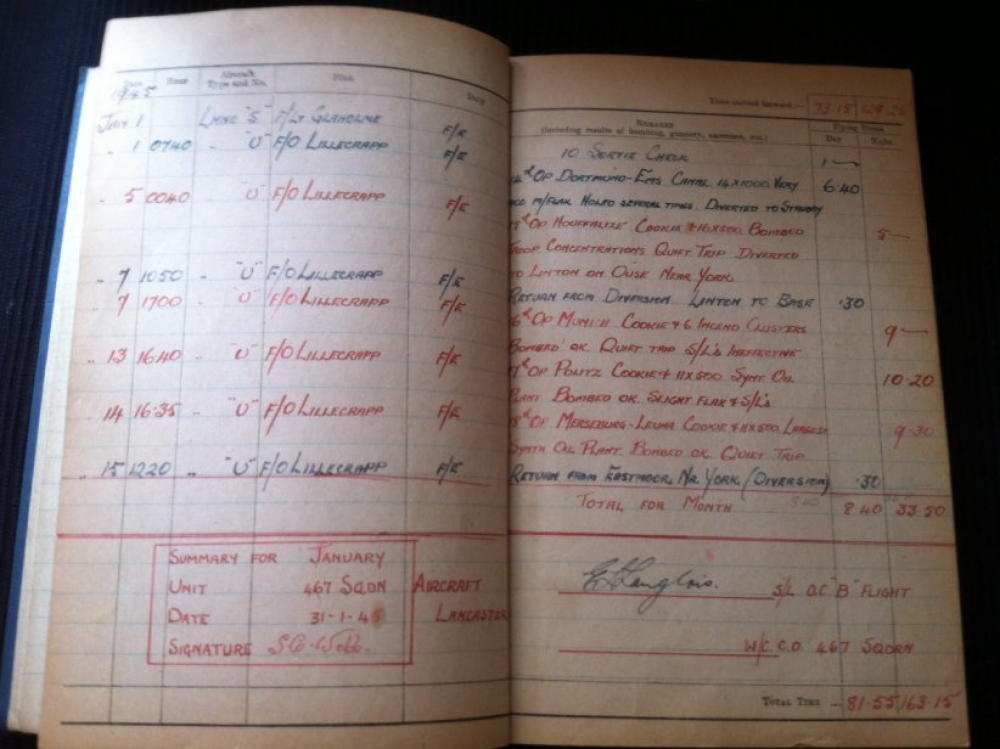 Date Hour Aircraft Type and No. Pilot Duty
1945
JAN 1 LANC "S" F/LT F/E
.. 1 0740 .. "U" F/O LILLECRAPP F/E
.. 5 0040 .. "U" F/O LILLECRAPP F/E
.. 7 1050 .. "U" F/O LILLECRAPP F/E
.. 7 1700 .. "U" F/O LILLECRAPP F/E
.. 13 1640 .. "U" F/O LILLECRAPP F/E
.. 14 16.35 .. "U" F/O LILLECRAPP F/E
.. 15 1220 .. "U" F/O LILLECRAPP F/E
SUMMARY FOR JANUARY
UNIT 467 SQDN AIRCRAFT
DATE 31-1-45 LANCASTER
SIGNATURE
Time carried forward:— 73.15 129.25
REMARKS Flying Times
(including results of bombing, gunnery, exercises, etc.) Day Night
10 SORTIE CHECK 1—
OP DORTMUND-EMS CANAL 14X1000 VERY 6.40
M/FLAK HOLED SEVERAL TIMES. DIVERTED TO
OP HOUFFALIZE COOKIE + 16X500 BOMBED 5—
TROOP CONCENTRATIONS QUIET TRIP DIVERTED
TO LINTON ON OUSE NEAR YORK
RETURN FROM DIVERSION. LINTON TO BASE .30
OP MUNICH COOKIE + 6 INCEND CLUSTERS 9—
BOMBED OK. QUIET TRIP S/L's INEFFECTIVE
OP POLITZ COOKIE + 11X500 SYNT OIL 10.20
PLANT BOMBED OK. SLIGHT FLAK + S/L's
OP MERSEBURG-LEUNA COOKIE + 11X500 LARGEST 9.30
SYNTH OIL PLANT. BOMBED OK QUIET TRIP
RETURN FROM EASTMOOR, NR. YORK (DIVERSION) .30
TOTAL FOR MONTH 8.40 33.50
E Langlois. S/L O.C "B" FLIGHT
W/C. C.O. 467 SQDRN
TOTAL TIME 81.55 163.15